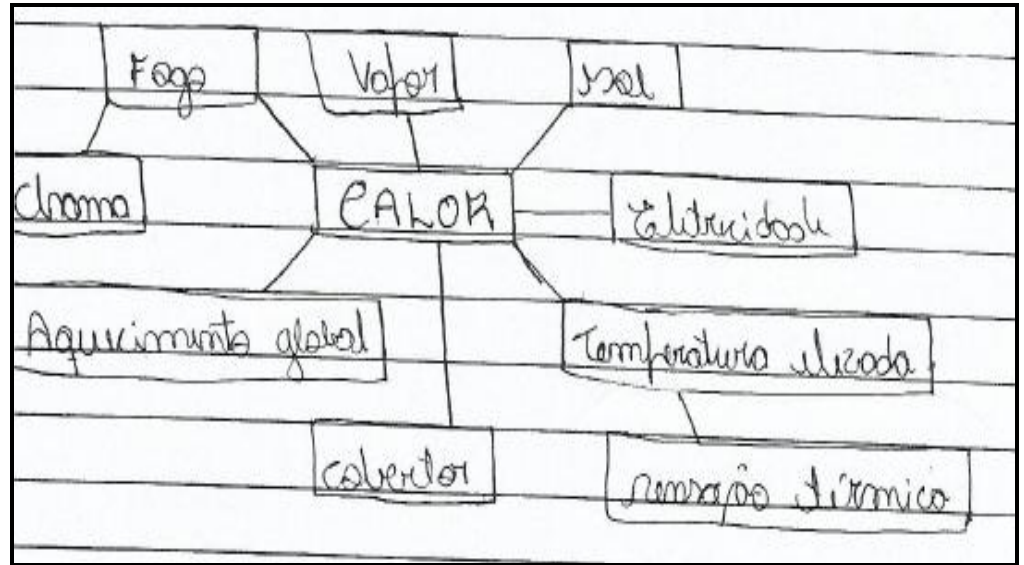 Fogo Vapor Sol
Chama CALOR Eletricidade
Aquecimento global Temperatura elevada
cobertor sensação térmica